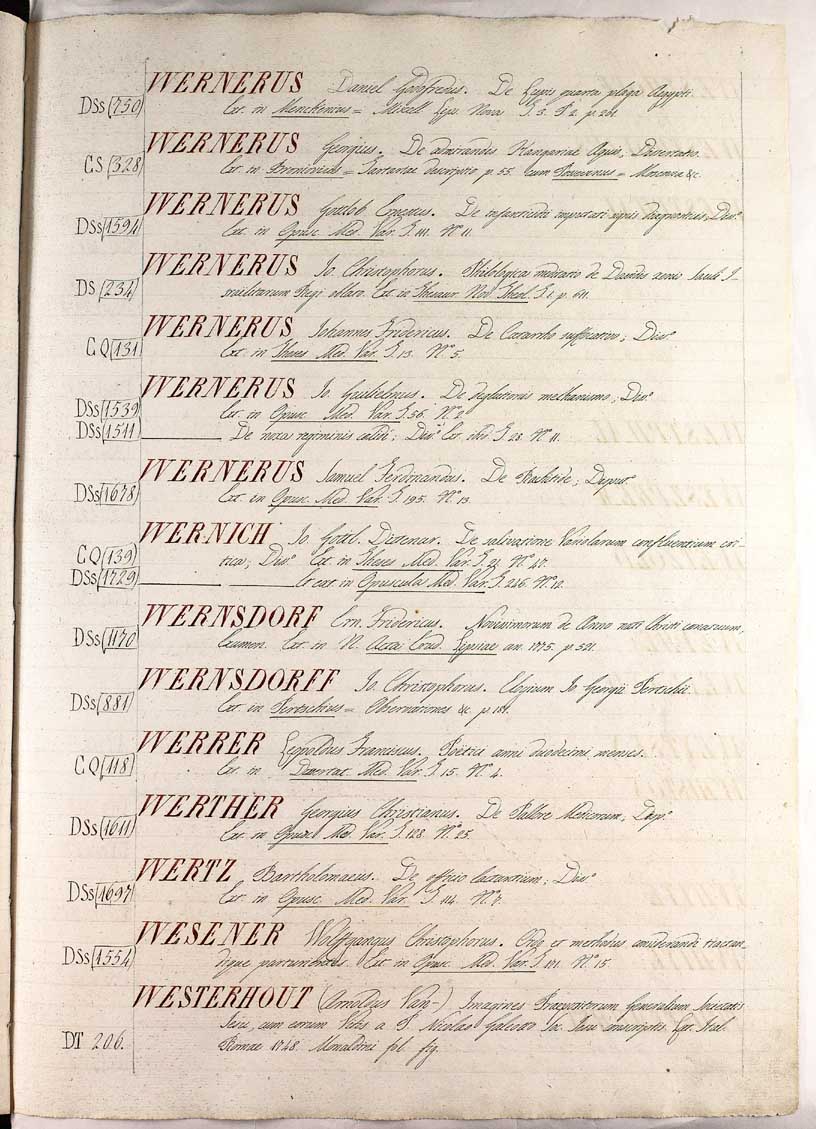 WERNERUS Daniel Godofredus. De Lepis quarta plaga Aegypti.
DSs 750 Ext. in Menckenius = Miscell. Lips. Nova T. 5. P. 2. p. 201.
WERNERUS Georgius. De admirandis Hungariae Aquis, Dissertatio.
CS 328 Ext. in Broniovius = Tartariae descriptio p. 55. cum = Moscovia &c.
WERNERUS Gottlob Ernestus. De infanticidii imputati signis diagnosticis, Diss.
DSs 1594 Ext. in Opusc. Med. Var. T. 111. N.º 11.
WERNERUS Jo. Christophorus. Philologica meditatio de Davidis Sauli I-
DS 234 sraelitarum Regi ablato. Ext. in Thesaur. Nov. Theol. T. 1. p. 611.
WERNERUS Johannes Fridericus. De Catarrho suffocativo; Diss.
CQ 131 Ext. in Thaes. Med. Var. T. 13. N.º 5.
WERNERUS Jo. Guilielmus. De deglutionis mechanismo; Diss.
DSs 1539 Ext. in Opusc. Med. Var. T. 56. N.º 2.
DSs 1511 De noxa regiminis calidi; Diss. Ext. ibi. T. 28. N. 11.
WERNERUS Samuel Ferdinandus. De Rachitide; Disput.
DSs 1678 Ext. in Opusc. Med. Var. T. 195. N.º 13.
WERNICH Jo. Gottl. De salivatione Variolarum confluentium cri-
CQ 139 tica; Diss. Ext. in Thaes. Med. Var. T. 21. N.º 47.
DSs 1729 Et ext. in Opuscula Med. Var. T. 246. N.º 10.
WERNSDORF Ern. Fridericus. Novissimorum de Anno nati Christi
DSs 1170 Examen. Ext. in N. Acta Erud. Lipsiae an. 1775. p. 521.
WERNSDORFF Jo. Christophorus. Elogium Jo. Georgii Pertschii.
DSs 881 Ext. in Pertschius = Observationes &c. p. 181.
WERRER Leopoldus Franciscus. Poëtici anni duodecim menses.
CQ 118 Ext. in Dissertat. Med. Var. T. 15. N.º 4.
WERTHER Georgius Christianus. De Pallore Medicorum; Disp.
DSs 1611 Ext. in Opusc. Med. Var. T. 128. N.º 25.
WERTZ Bartholomaeus. De officio lactantium; Diss.
DSs 1697 Ext. in Opusc. Med. Var. T. 214. N.º 7.
WESENER Wolffgangus Christophorus. Ordo et methodus considerandi tractan-
DSs 1554 dique parturientes. Ext. in Opusc. Med. Var. T. N.º 15.
WESTERHOUT (Arnoldus Van-) Imagines Praepositorum Generalium Societatis
Jesu, cum eorum Vitis a P. Nicolao Galeotti Soc. Jesu conscriptis. Lat. Ital.
DT 206. Romae 1748. Monaldini fol. fig.